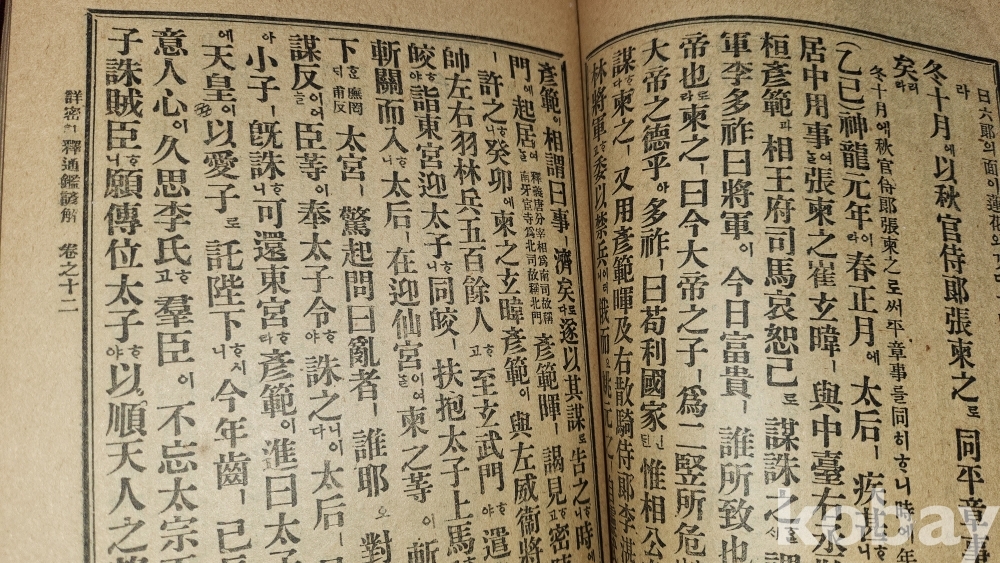 冬十月에以秋官侍郎張柬之로同平章事
矣라
冬十月에秋官侍郎張柬之로써平章事를同히ᄒᆞ니時
(乙巳)神龍元年이라春正月에太后ㅣ疾甚
居中用事ㅣ어張柬之崔玄暐ㅣ與中臺右丞
桓彦範과相王府司馬袁恕己로謀誅之
軍李多祚曰將軍이今日富貴ㅣ誰所致也
帝也로다柬之ㅣ曰今大帝之子ㅣ爲二豎所危
大帝之德乎아多祚ㅣ曰苟利國家인된惟相公
謀ᄒᆞ다柬之ㅣ又用彦範暉及右散騎侍郎李湛
林將軍ᄒᆞ고委以禁兵
彦範이相謂曰事ㅣ濟矣라ᄒᆞ고遂以其謀로告之ᄒᆞ니時에
門에起居ᄒᆞᆯᄉᆡ釋義唐分宰相爲南司故稱
南牙宦寺爲北司故稱北門
彦範暉ㅣ謁見ᄒᆞ고密
ㅣ許之ᄒᆞ니癸卯에柬之玄暐彦範이與左威衛將
帥左右羽林兵五百餘人ᄒᆞ고至玄武門ᄒᆞ야遣
皎ᄒᆞ야詣東宮迎太子ᄒᆞ니同皎ㅣ扶抱太子上馬
斬關而入ᄒᆞ니太后ㅣ在迎仙宮이어늘柬之等이斬
下ᄒᆞᆫ되廡罔
甫反
太宮ㅣ驚起問曰亂者ㅣ誰耶오對
謀反이어늘臣等이奉太子令ᄒᆞ야誅之니이다太后ㅣ
아小子ㅣ旣誅ᄒᆞ니可還東宮ᄒᆞ라彦範이進曰太子
에天皇이以愛子로託陛下ᄒᆞ시니今年齒ㅣ已
意人心이久思李氏ᄒᆞ고羣臣이不忘太宗
子誅賊臣ᄒᆞ니願傳位太子ᄒᆞ야以順天人之
詳密註釋通鑑諺解 卷之十二
kobay